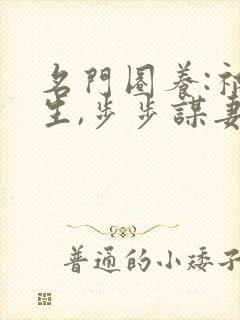 名門圈養:
生,步步謀妻
普通的小矮子